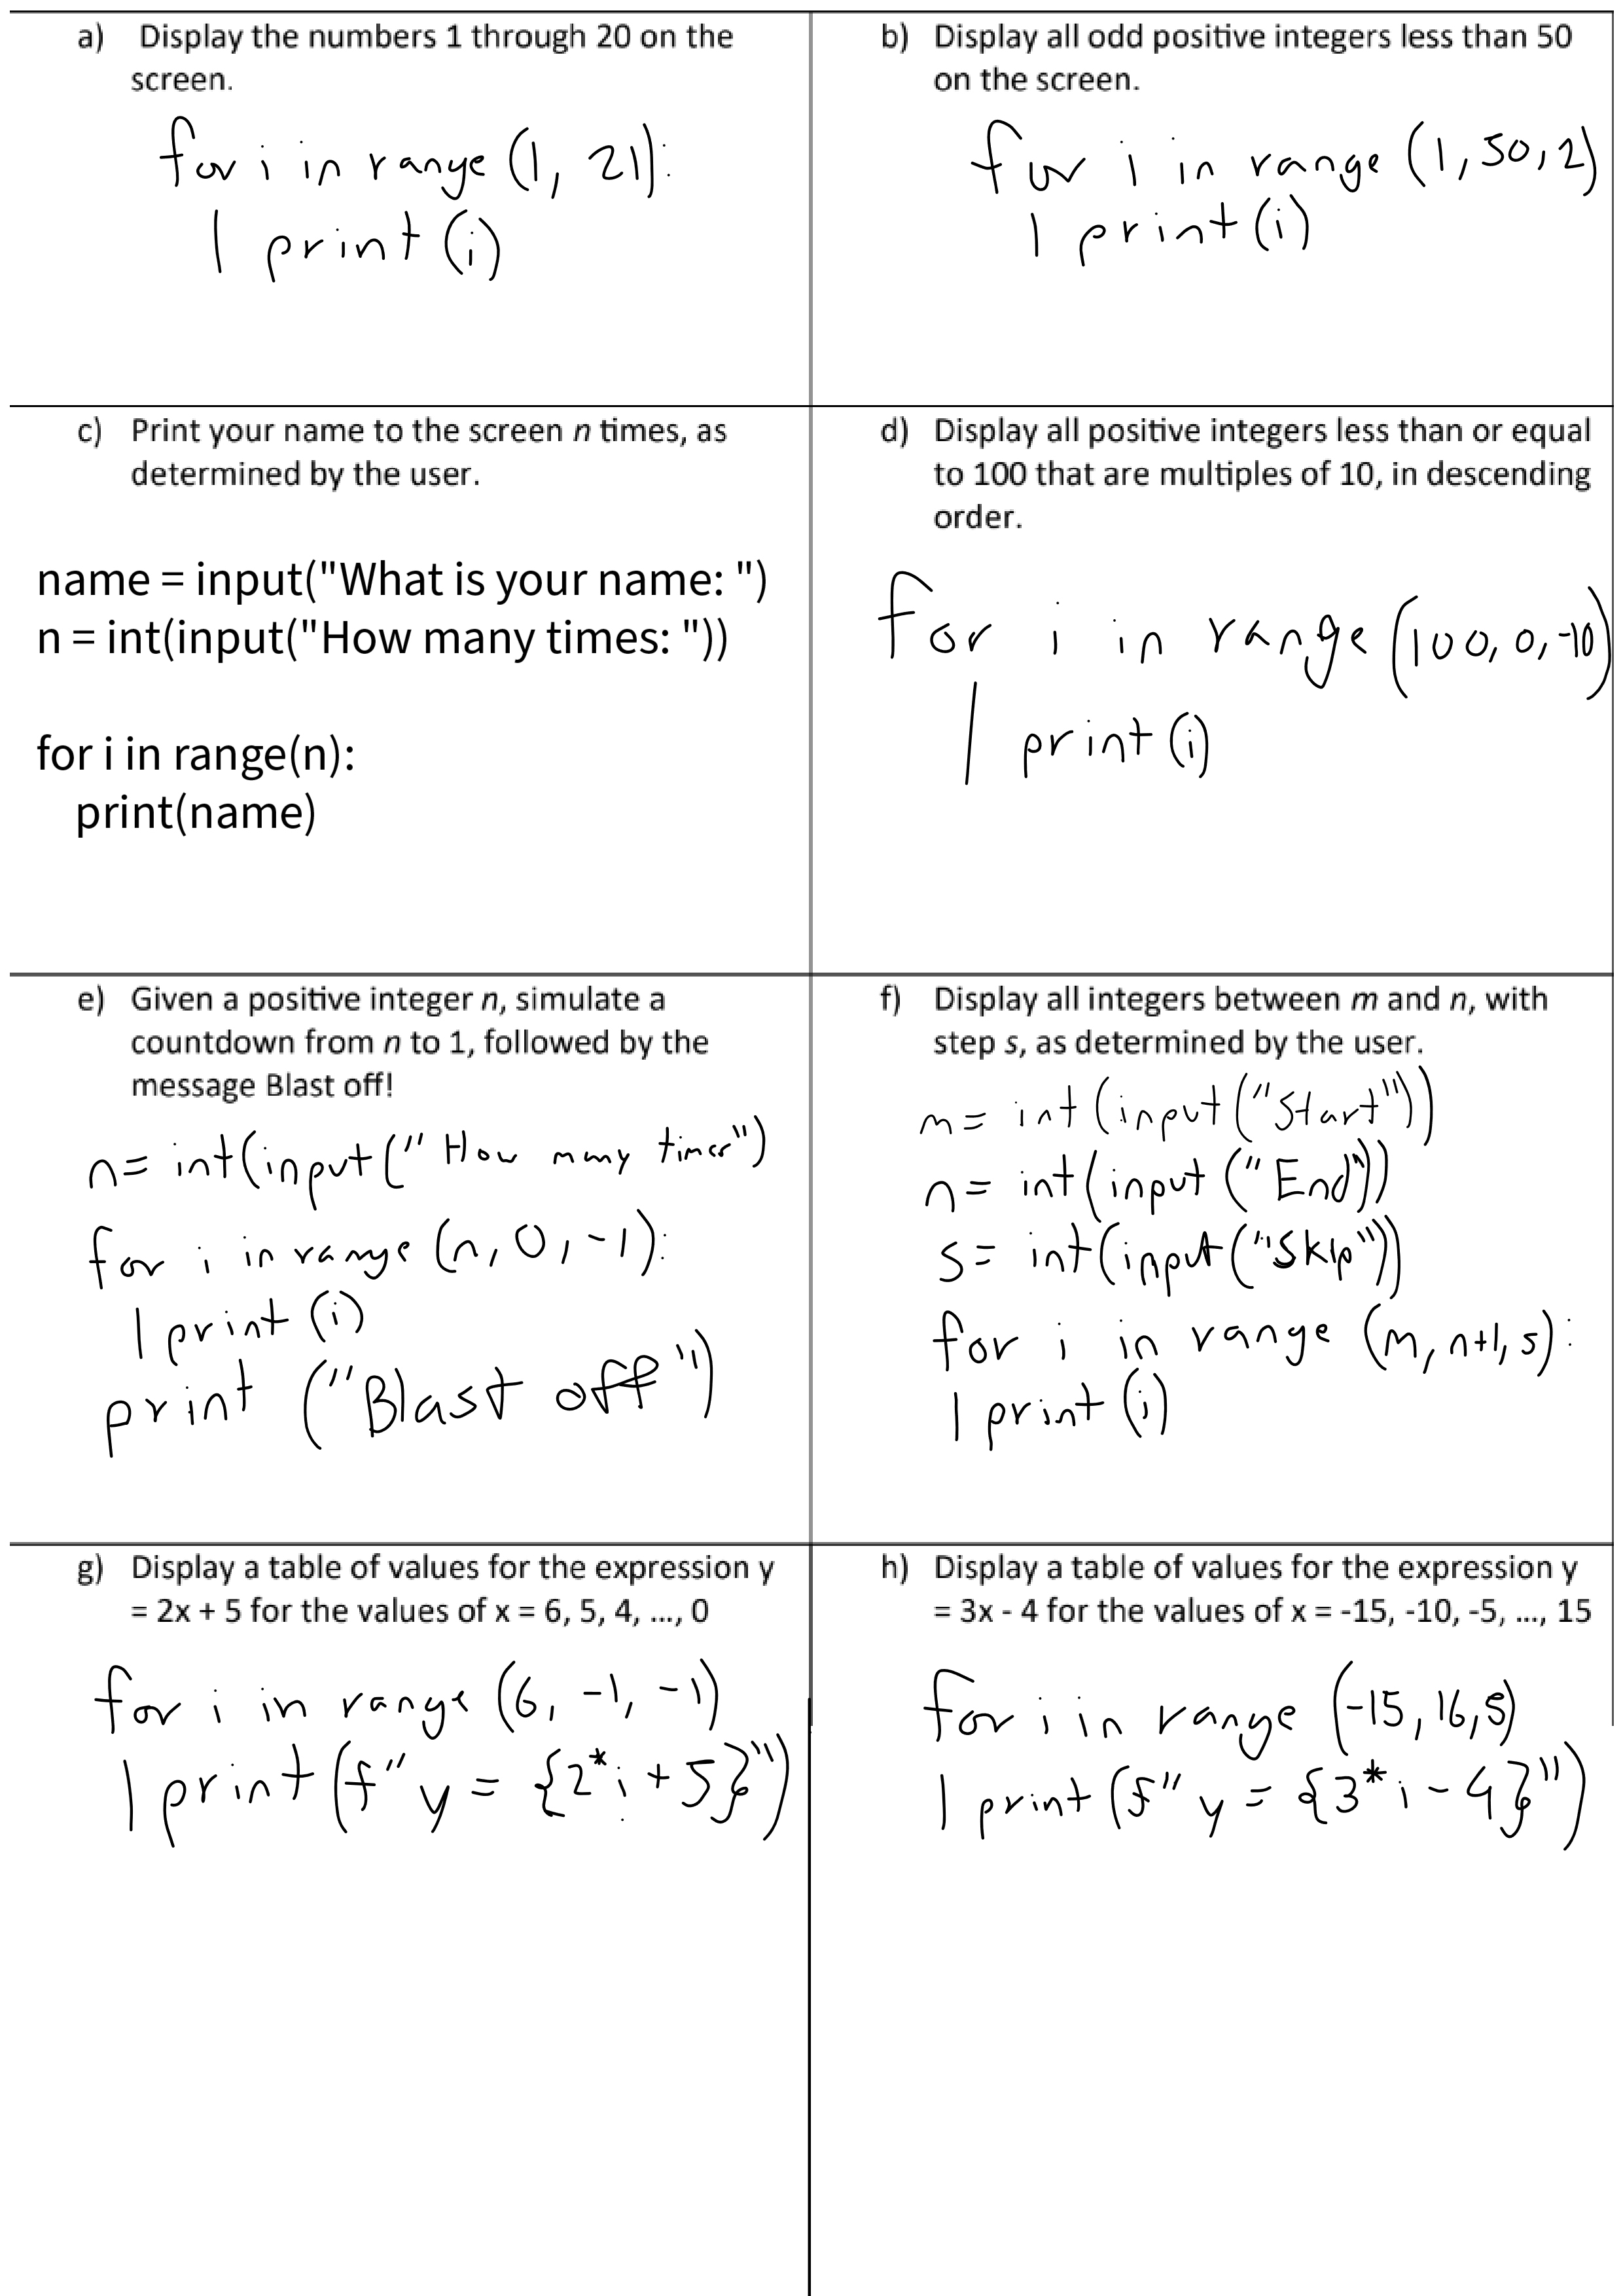 a) Display the numbers 1 through 20 on the
screen.
for i in range (1, 21):
print (i)
b) Display all odd positive integers less than 50
on the screen.
for i in range (1, 50, 2)
print (i)
c) Print your name to the screen n times, as
determined by the user.
name = input("What is your name: ")
n = int(input("How many times: "))
for i in range(n):
print(name)
d) Display all positive integers less than or equal
to 100 that are multiples of 10, in descending
order.
for i in range (100, 0, -10)
print (i)
e) Given a positive integer n, simulate a
countdown from n to 1, followed by the
message Blast off!
n = int(input("How many times")
for i in range (n, 0, -1):
print (i)
print ("Blast off")
f) Display all integers between m and n, with
step s, as determined by the user.
m = int (input ("Start"))
n = int (input ("End"))
s = int(input ("Skip"))
for i in range (m, n+1, s):
print (i)
g) Display a table of values for the expression y
= 2x + 5 for the values of x = 6, 5, 4, ..., 0
for i in range (6, -1, -1)
print (f" y = {2*i + 5}")
h) Display a table of values for the expression y
= 3x - 4 for the values of x = -15, -10, -5, ..., 15
for i in range (-15, 16, 5)
print (f" y = {3*i - 4}")